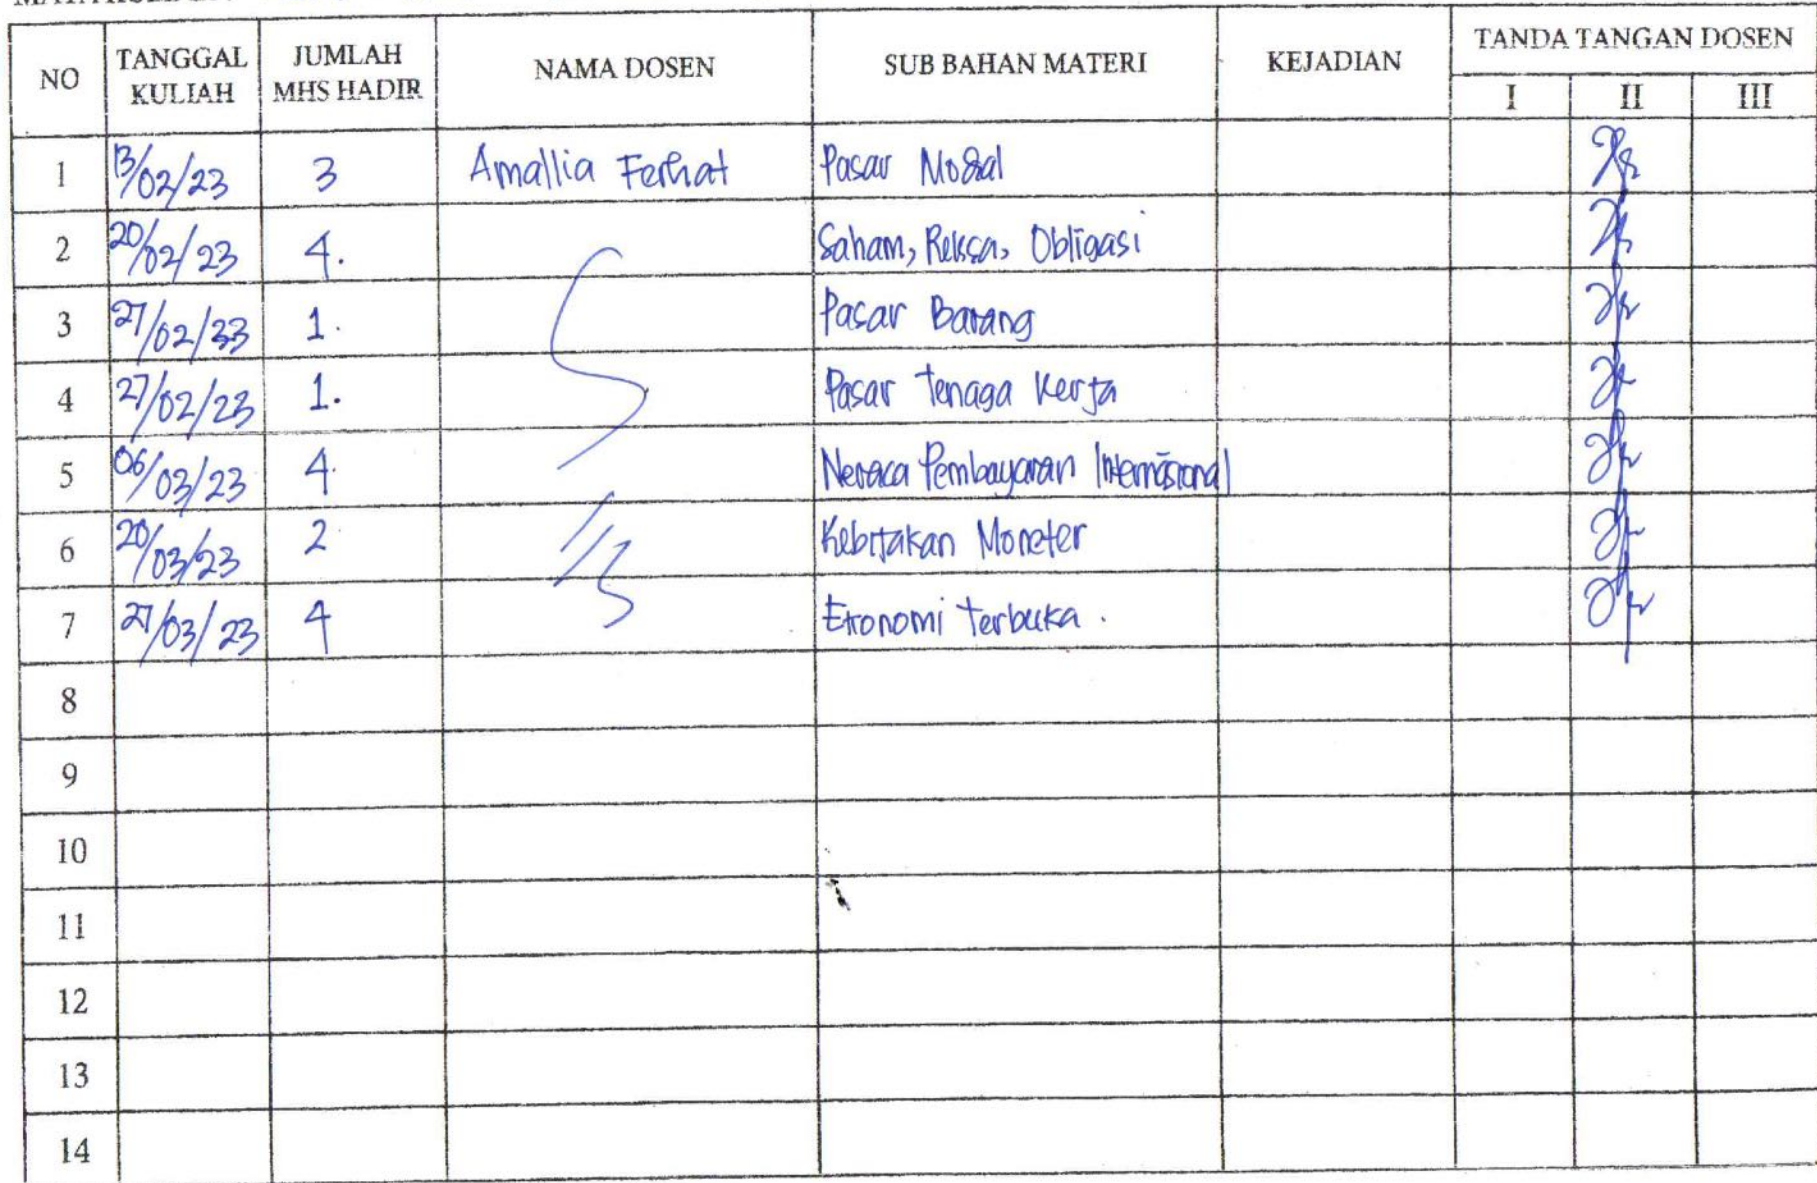 NO TANGGAL KULIAH JUMLAH MHS HADIR NAMA DOSEN SUB BAHAN MATERI KEJADIAN TANDA TANGAN DOSEN
I II III
1 13/02/23 3 Amallia Ferhat Pasar Modal
2 20/02/23 4. Saham, Reksa, Obligasi
3 27/02/23 1. Pasar Barang
4 27/02/23 1. Pasar Tenaga Kerja
5 06/03/23 4. Neraca Pembayaran Internasional
6 20/03/23 2 Kebijakan Moneter
7 27/03/23 4 Ekonomi Terbuka.
8
9
10
11
12
13
14